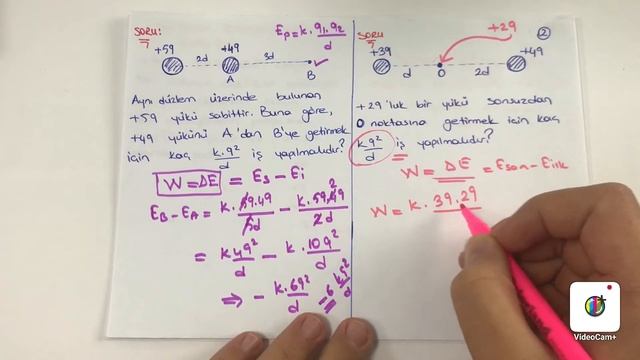 SORU:
Ep = k.q1.q2
d
+5q
2d
+4q
3d
A
B
Aynı düzlem üzerinde bulunan
+5q yükü sabittir. Buna göre,
+4q yükünü A'dan B'ye getirmek
için kaç k.q²/d iş yapılmalıdır?
W=ΔE = Es - Ei
EB-EA = k.5q.4q/5d - k.5q.4q/2d 2
= k4q²/d - k.10q²/d
⇒ - k.6q²/d = 6 kq²/d
SORU
+2q
2
+3q
+4q
d
O
2d
+2q'luk bir yükü sonsuzdan
O noktasına getirmek için kaç
kq²/d iş yapılmalıdır?
W = ΔE = Eson - Eilk
W = k. 3q.2q
VideoCam+